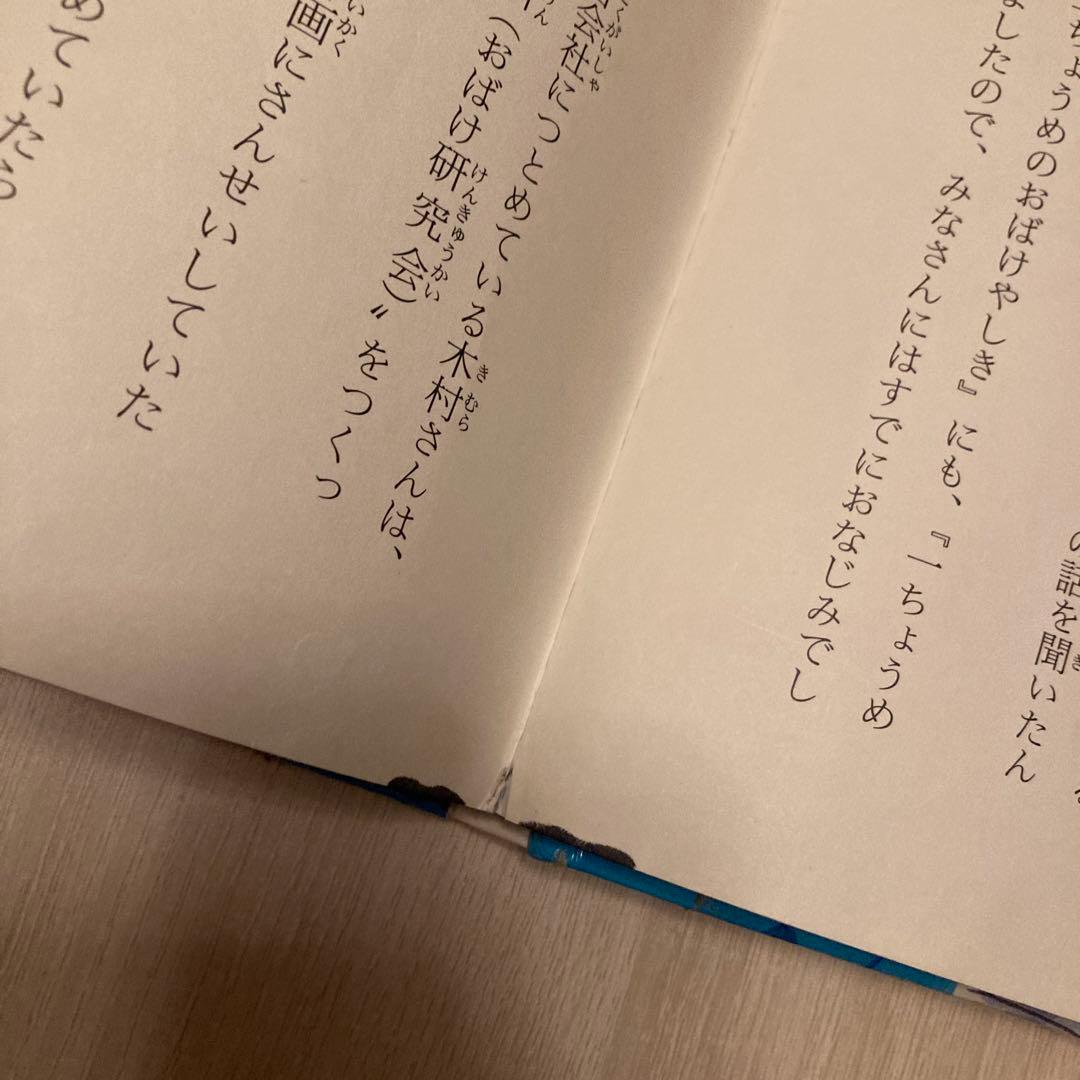 の話を聞いたん
ちょうめのおばけやしき』にも、『一ちょうめ
ましたので、みなさんにはすでにおなじみでし
会社につとめている木村さんは、
（おばけ研究会）〟をつくっ
画にさんせいしていた
めていたら